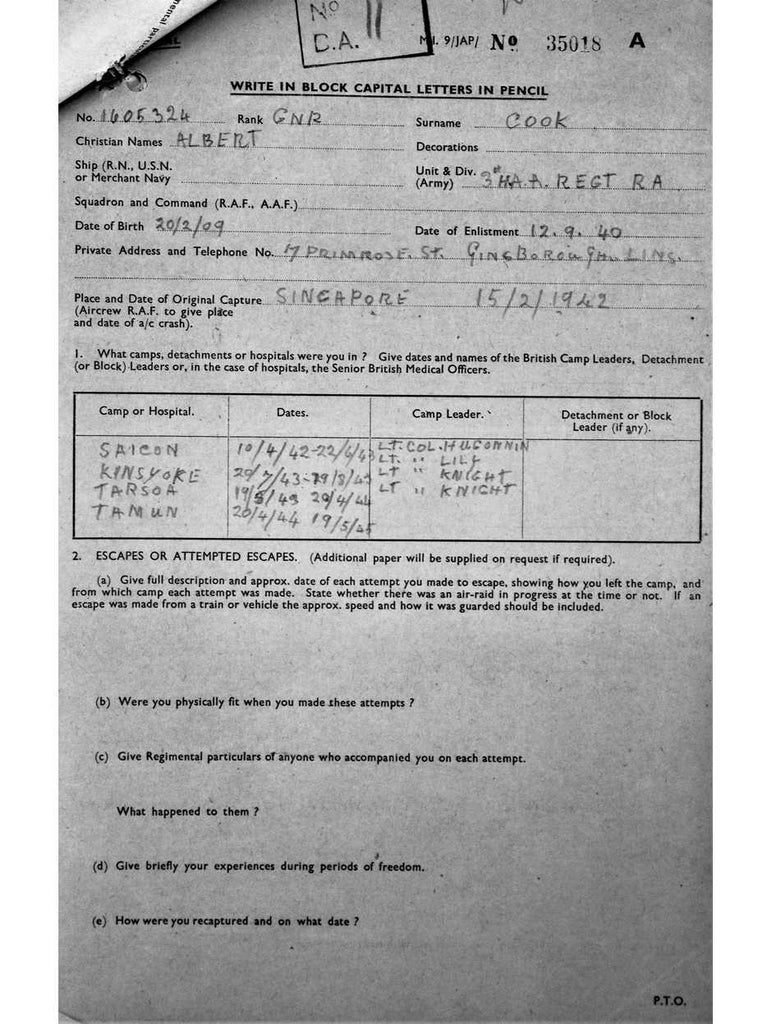 No 11
C.A.
M.I. 9/JAP/ No 35018 A
WRITE IN BLOCK CAPITAL LETTERS IN PENCIL
No. 1605324 Rank GNR Surname COOK
Christian Names ALBERT Decorations
Ship (R.N., U.S.N. or Merchant Navy
Unit & Div. (Army) 3rd HA.A. REGT RA
Squadron and Command (R.A.F., A.A.F.)
Date of Birth 20/2/09 Date of Enlistment 12.9.40
Private Address and Telephone No. 17 PRIMROSE. ST. GINSBOROUGH. LINS.
Place and Date of Original Capture SINGAPORE 15/2/1942
(Aircrew R.A.F. to give place
and date of a/c crash).
1. What camps, detachments or hospitals were you in ? Give dates and names of the British Camp Leaders, Detachment
(or Block) Leaders or, in the case of hospitals, the Senior British Medical Officers.
Camp or Hospital. Dates. Camp Leader. Detachment or Block
Leader (if any).
SAICON 10/4/42-22/6/43 LT. COL. HUGONNIN
KINSYOKE 20/7/43-19/8/43 LT. " LILY
TARSOA 19/8/43 20/4/44 LT " KNIGHT
TAMUN 20/4/44 19/5/45 LT " KNIGHT
2. ESCAPES OR ATTEMPTED ESCAPES. (Additional paper will be supplied on request if required).
(a) Give full description and approx. date of each attempt you made to escape, showing how you left the camp, and
from which camp each attempt was made. State whether there was an air-raid in progress at the time or not. If an
escape was made from a train or vehicle the approx. speed and how it was guarded should be included.
(b) Were you physically fit when you made these attempts ?
(c) Give Regimental particulars of anyone who accompanied you on each attempt.
What happened to them ?
(d) Give briefly your experiences during periods of freedom.
(e) How were you recaptured and on what date ?
P.T.O.